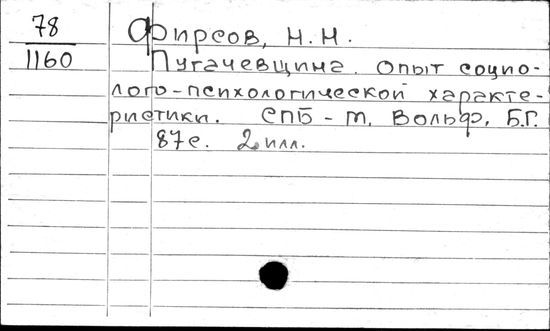 78
1160
Фирсов, Н.Н.
Пугачевщина. Опыт социо-
лого-психологической характе-
ристики. СПБ - М, Вольф, Б.Г.
87с. 2 илл.